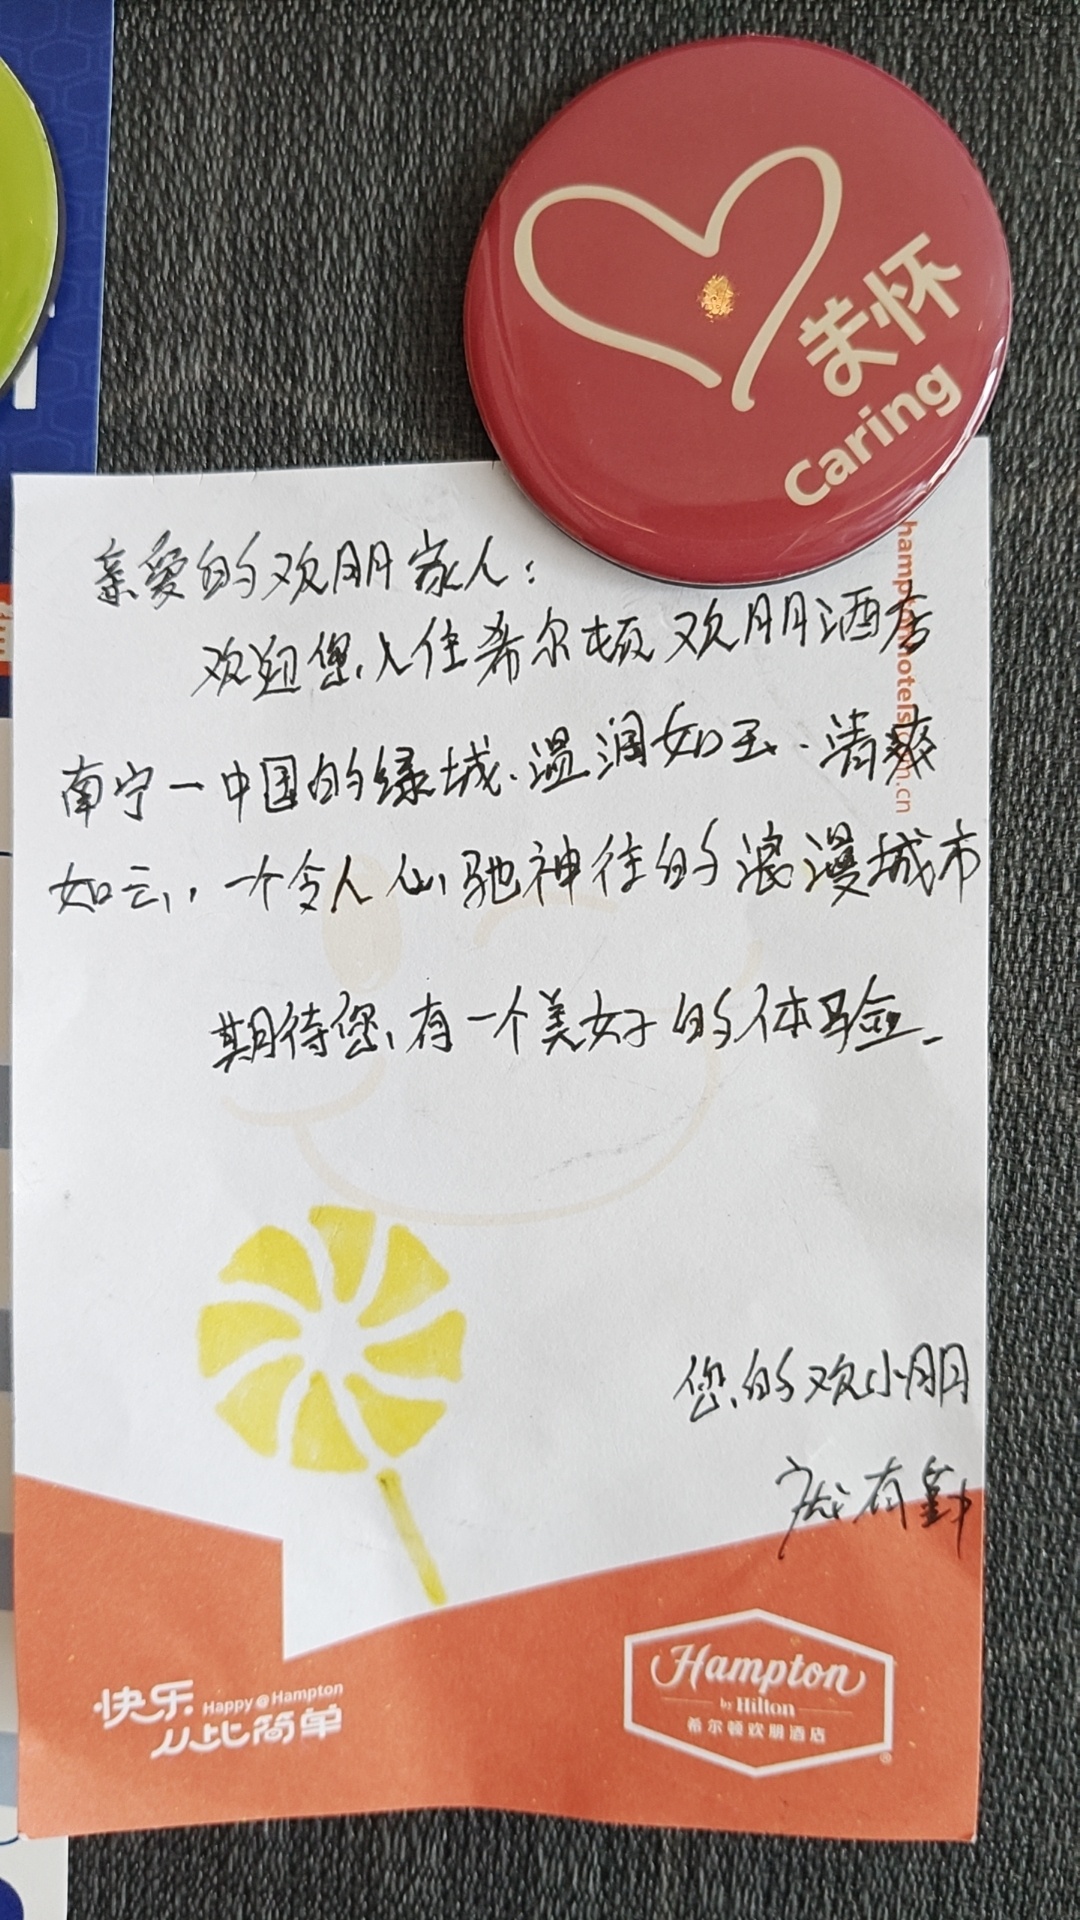 关怀
Caring
hamptonhotels.com.cn
亲爱的欢朋家人：
欢迎您入住希尔顿欢朋酒店
南宁一中国的绿城.温润如玉.清爽
如云，一个令人心驰神往的浪漫城市
期待您有一个美好的体验.
您的欢小朋
有勤
快乐 Happy@Hampton
从此简单
Hampton
by Hilton
希尔顿欢朋酒店